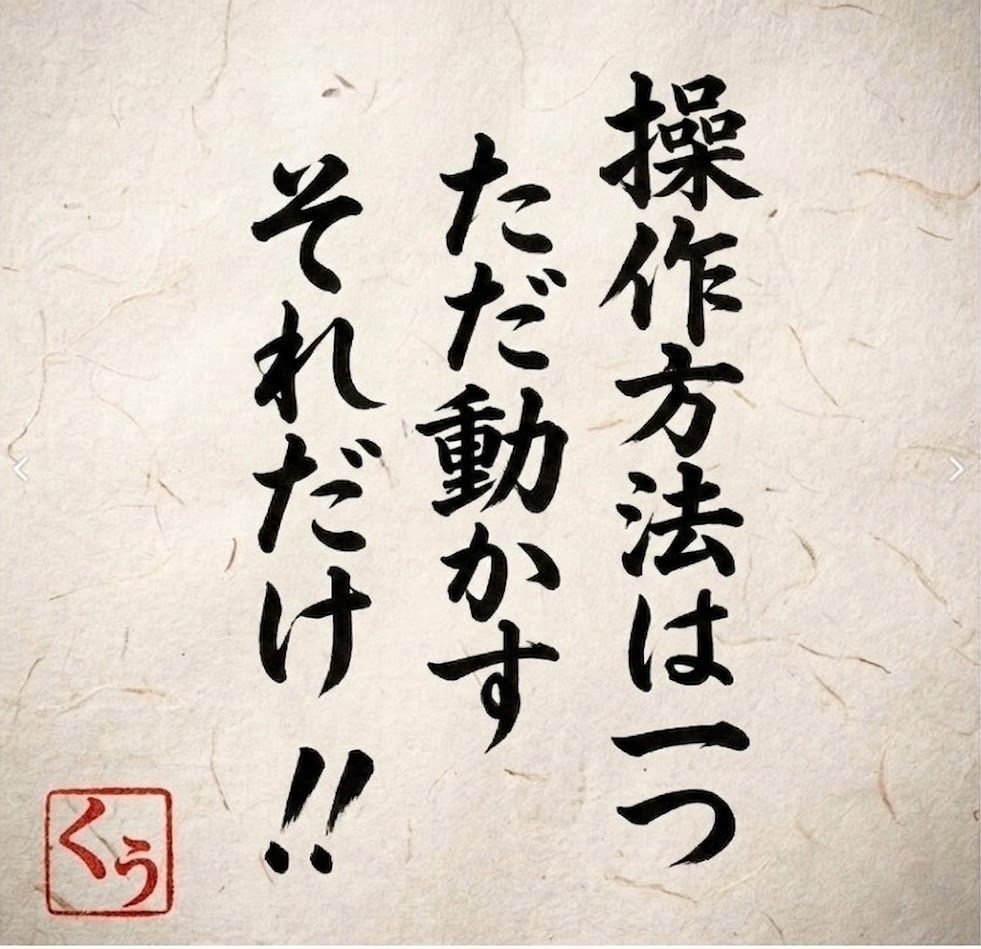 操作方法は一つ
ただ動かす
それだけ!!
くぅ